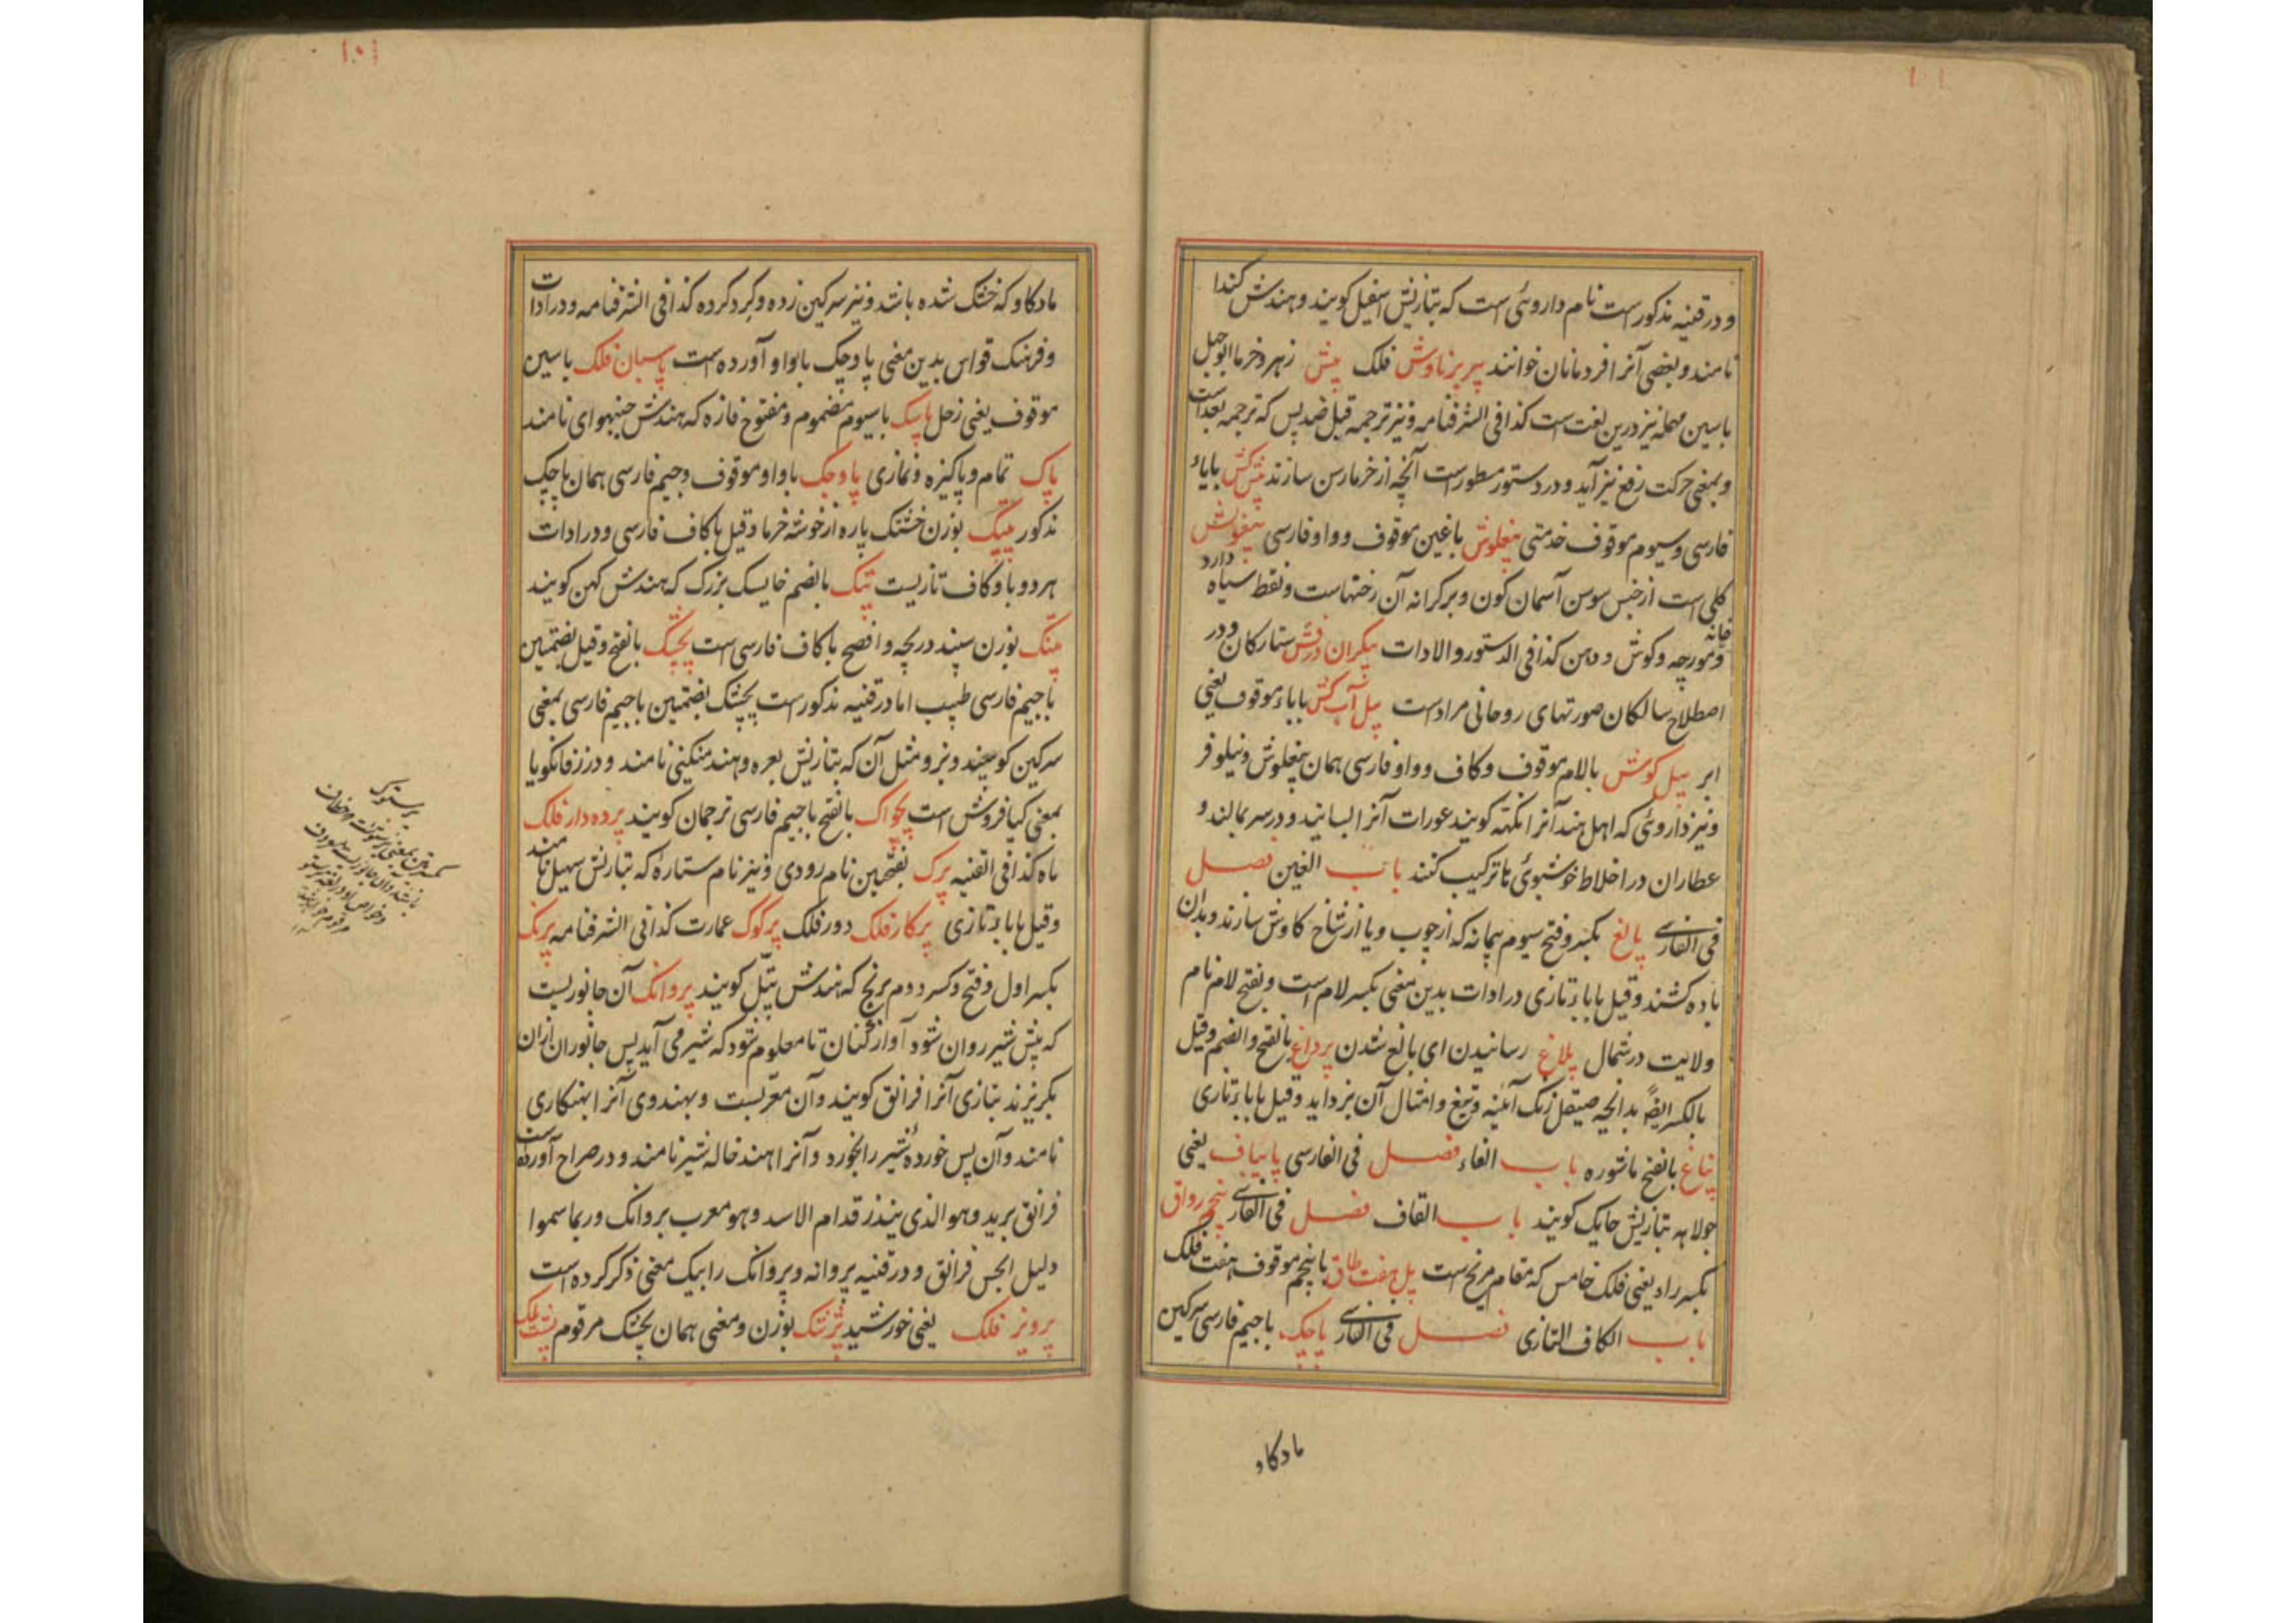 ۱۰۱
و در قنیه مذکورست نام داروئی است که بتازیش اسفیل کویند و هندش کندا
نامند و بعضی آنرا افردمانان خوانند پریزناوش فلک پیش زهر و خرما ابوجهل
باسین مهمله نیز درین لغت است کذا فی الشرفنامه و نیز ترجمه قبل ضد پس که ترجمه بعد است
و بمعنی حرکت رفع نیز آید و در دستور مسطورست آنچه از خرما رسن سازند پیش کش بایاء
فارسی و سیوم موقوف خدمتی پیغلوش باغین موقوف و واو فارسی پیغوش
کلی است از جنس سوسن آسمان کون و بر کرانه آن رختهاست و نقط سیاه دارد
و مورچه خانه و کوش و دهن کذا فی الدستور و الادات پیکران درفش ستارکان و در
اصطلاح سالکان صورتهای روحانی مرادست پیل آب کش باباء موقوف یعنی
ابر پیل کوش بالام موقوف و کاف و واو فارسی همان پیغلوش و نیلوفر
و نیز داروئی که اهل هند آنرا نکهته کویند عورات آنرا بسایند و در سر بمالند و
عطاران در اخلاط خوشبوئی ها ترکیب کنند باب الغین فصل
فی الفارسی پالغ بکسر و فتح سیوم پیمانه که از چوب و یا از شاخ کاوش سازند و بدان
باده کشند و قیل باباء تازی در ادات بدین معنی بکسر لام است و بفتح لام نام
ولایت در شمال پلاغ رسانیدن ای بالغ شدن پرداغ بالفتح و الضم و قیل
بالکسر ایضاً بدانچه صیقل زنک آئینه و تیغ و امثال آن بزداید و قیل باباء تازی
پناغ بالفتح ماشوره باب الفاء فصل فی الفارسی پایباف یعنی
جولاهه بتازیش حایک کویند باب القاف فصل فی الفارسی پنجم رواق
بکسر راء یعنی فلک خامس که مقام مریخ است پل هفت طاق باپنجم موقوف هفت فلک
باب الکاف التازی فصل فی الفارسی پاچک باجیم فارسی سرکین
مادکاو
۱۰۱
مادکاو که خشک شده باشد و نیز سرکین زده و کرد کرده کذا فی الشرفنامه و در ادات
و فرهنک قواس بدین معنی پاوچک باواو آورده است پاسبان فلک باسین
موقوف یعنی زحل پاسک باسیوم مضموم و مفتوح فازه که هندش جنبهوای نامند
پاک تمام و پاکیزه و نمازی پاوچک باواو موقوف و جیم فارسی همان پاچک
مذکور پتک بوزن خشتک پاره از خوشه خرما و قیل باکاف فارسی و در ادات
هر دو با و کاف تازیست پتک بالضم خایسک بزرک که هندش کهن کویند
پتنک بوزن سپند دریچه و افصح باکاف فارسی است پچشک بالفتح و قیل بضمتین
باجیم فارسی طبیب اما در قنیه مذکورست پچشک بضمتین باجیم فارسی بمعنی
سرکین کوسپند و بز و مثل آن که بتازیش بعره و هند منکینی نامند و در زفانکویا
بمعنی کیا فروش است پچواک بالفتح باجیم فارسی ترجمان کویند پرده دار فلک
ماه کذا فی القنیه پرک بفتحتین نام رودی و نیز نام ستاره که بتازیش سهیل نامند
و قیل باباء تازی پرکار فلک دور فلک پرکوک عمارت کذا فی الشرفنامه پرنک
بکسر اول و فتح و کسر دوم برنج که هندش پیتل کویند پروانک آن جانوریست
که پیش شیر روان شود آواز کنان تا معلوم شود که شیر می آید پس جانوران ازان
بکریزند بتازی آنرا فرانق کویند و آن معربست و بهندوی آنرا بهنکاری
نامند و آن پس خورده شیر را بخورد و آنرا اهند خاله شیر نامند و در صراح آورده است
فرانق برید و هو الذی ینذر قدام الاسد و هو معرب بروانک و ربما سموا
دلیل الجیش فرانق و در قنیه پروانه و پروانک را بیک معنی ذکر کرده است
پرویز فلک یعنی خورشید پزشک بوزن و معنی همان پچشک مرقوم
پرستوک